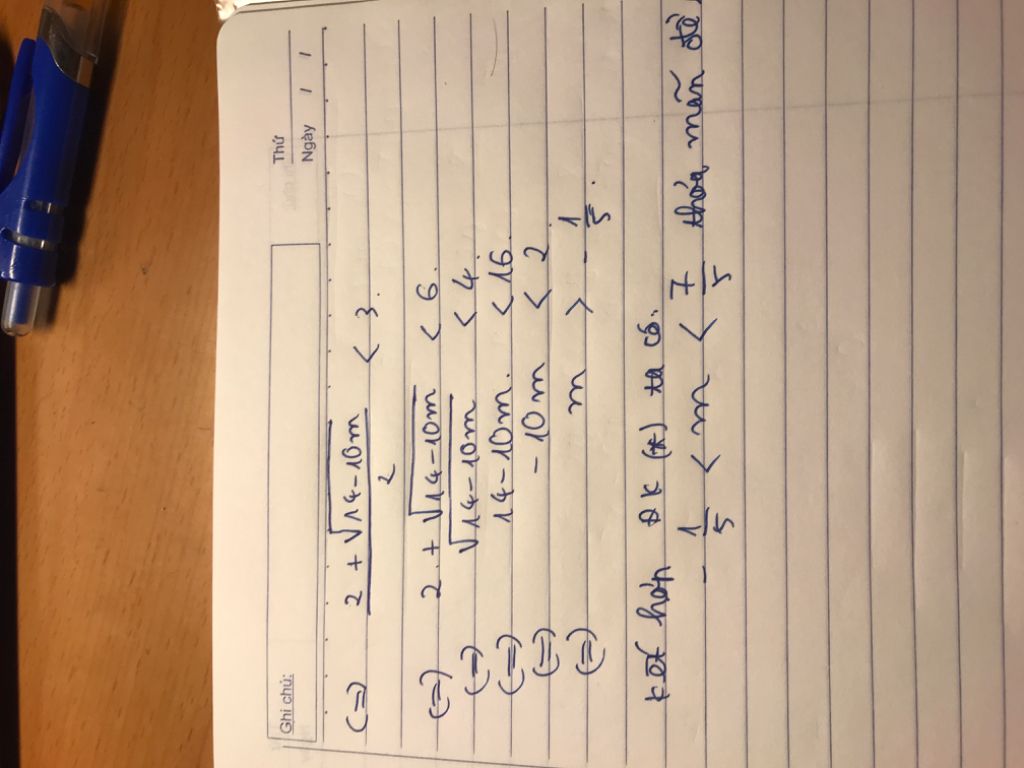 Ghi chú:
Thứ
Ngày / /
(=) (2 + √(14-10m))/2 < 3.
(=) 2 + √(14-10m) < 6.
(=) √(14-10m) < 4.
(=) 14-10m. < 16.
(=) -10m < 2
(=) m > -1/5.
kết hợp ĐK (*) ta có.
-1/5 < m < 7/5 thỏa mãn đề